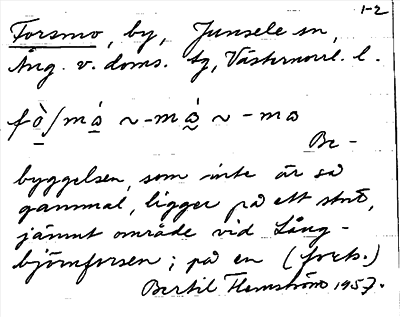 1-2
Forsmo, by, Junsele sn,
Ång. v. doms. tg, Västernorrl. l.
Be-
byggelsen, som inte är så
gammal, ligger på ett stort,
jämnt område vid Lång-
björnforsen; på en (forts.)
Bertil Flemström 1957.